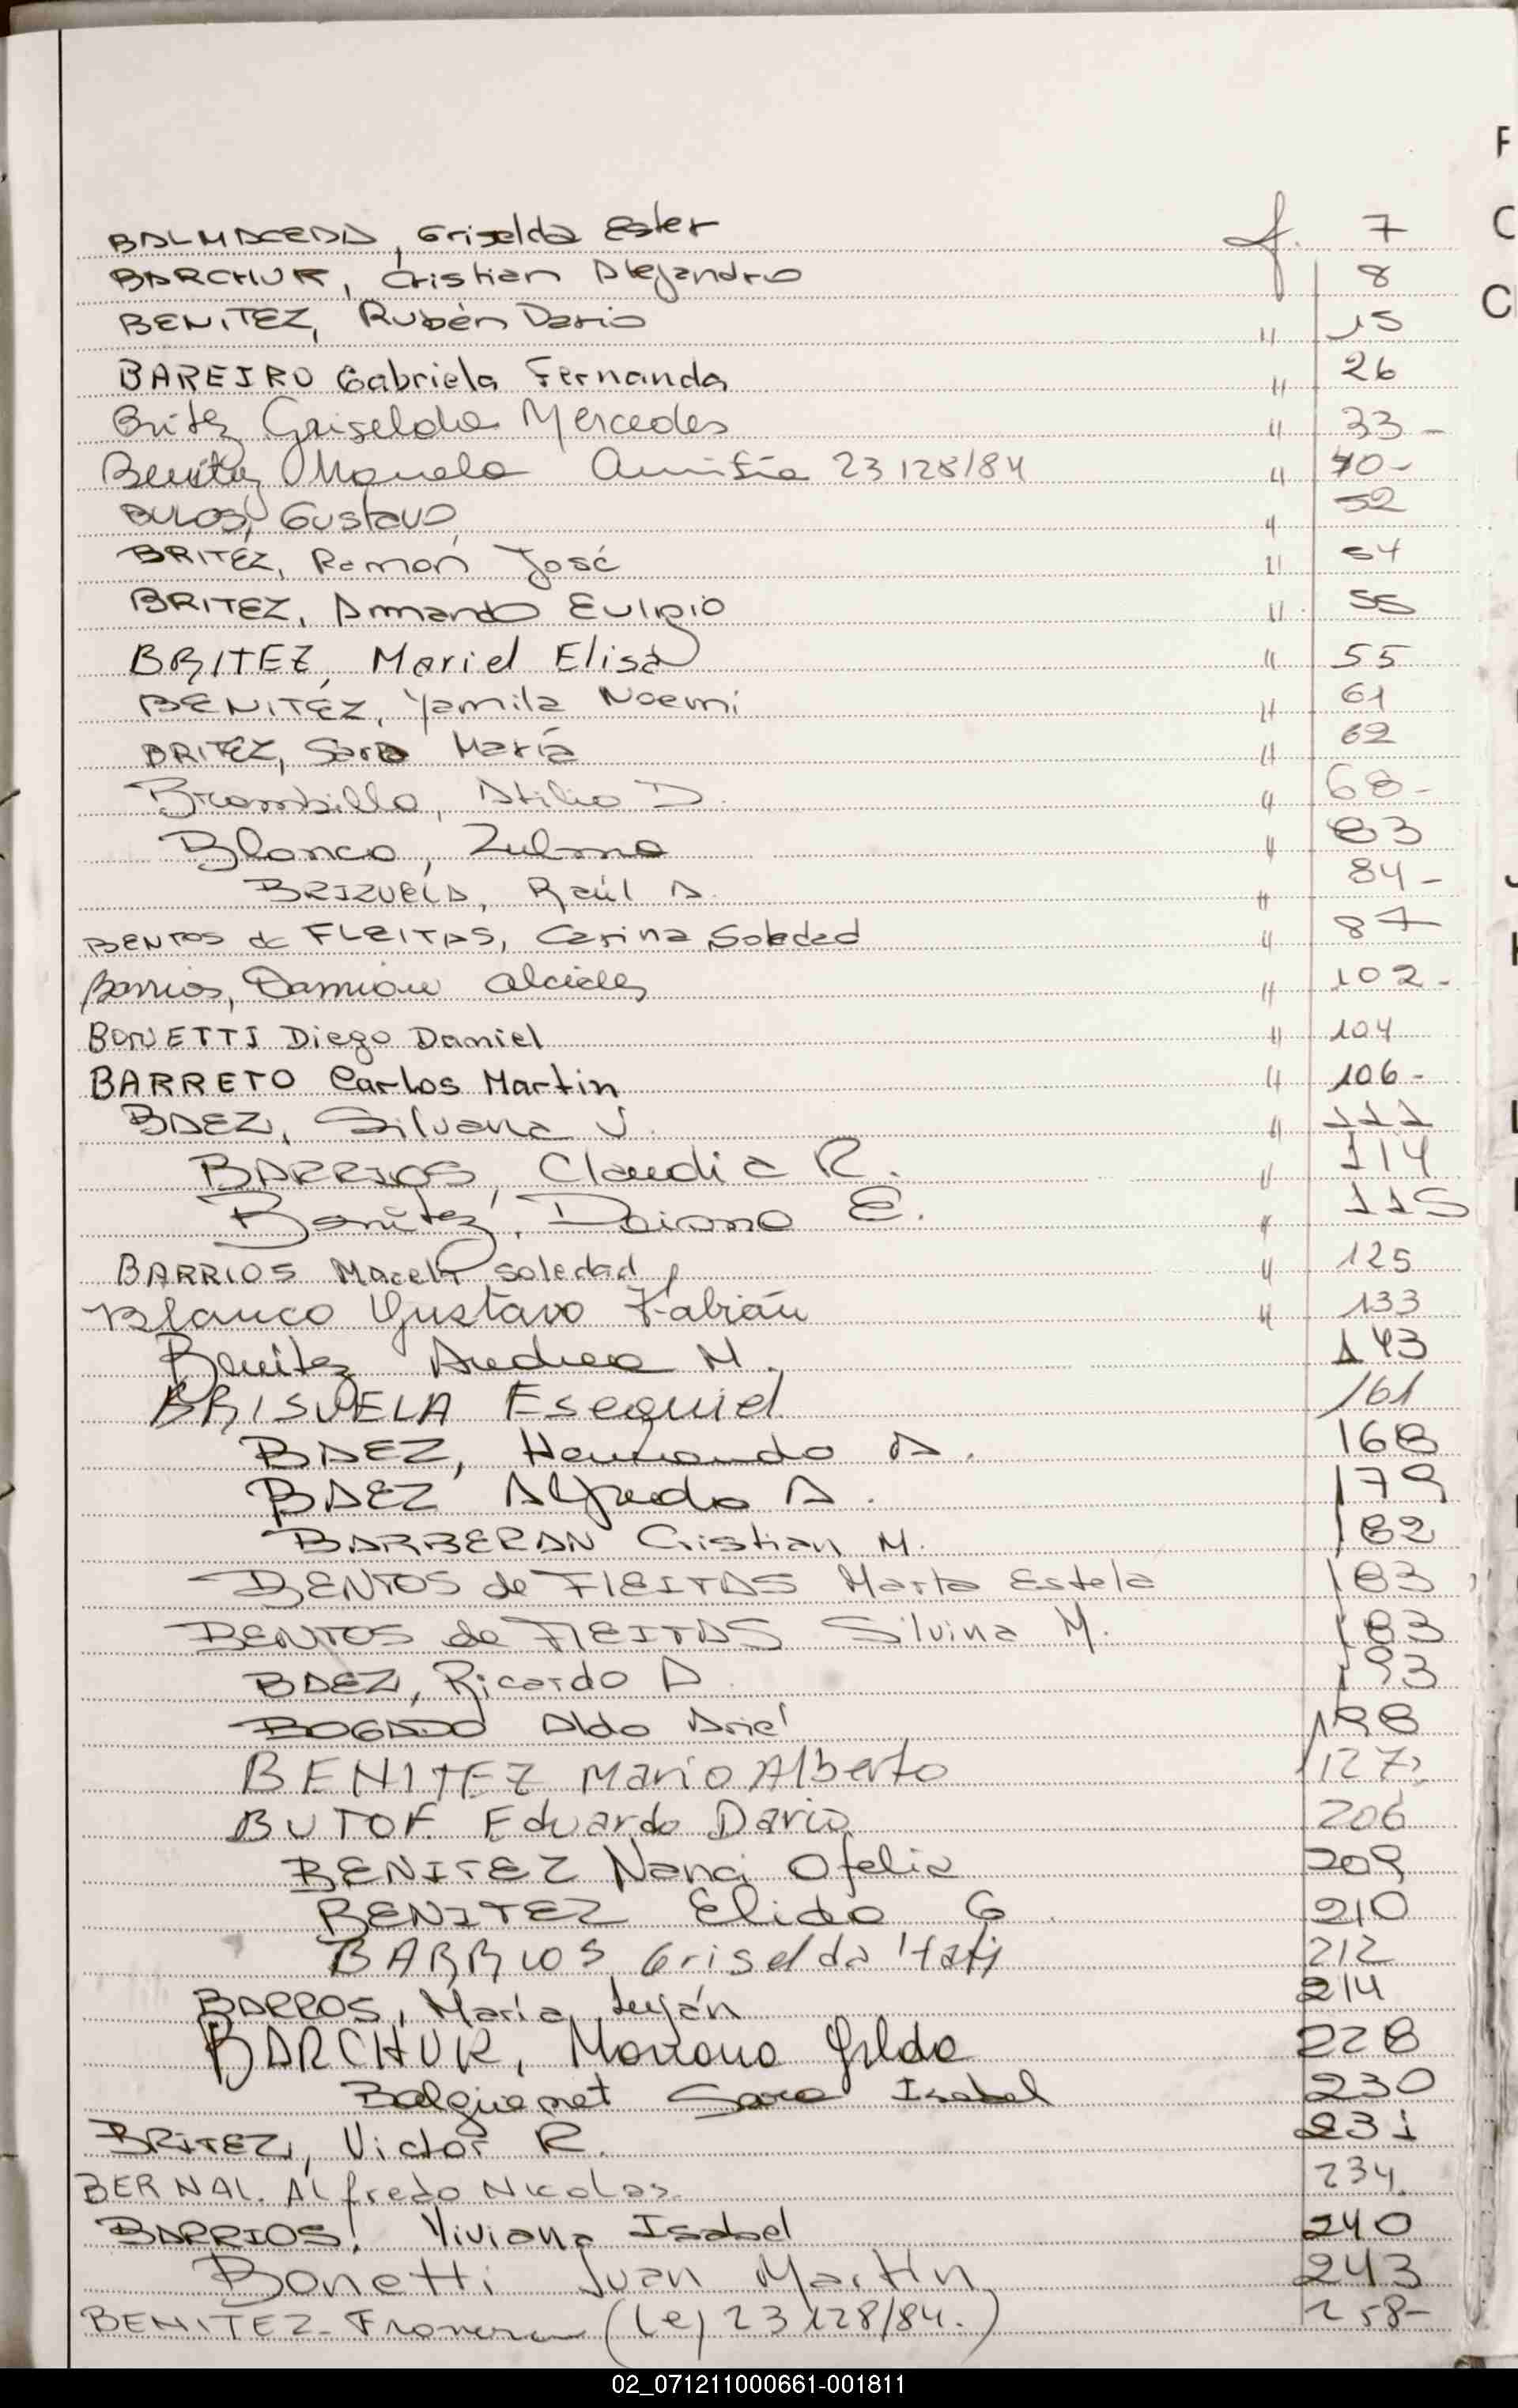 BALMACEDA, Griselda Ester f. 7
BARCHUK, Cristian Alejandro 8
BENITEZ, Rubén Dario " 15
BAREIRO Gabriela Fernanda " 26
Britez Griselda Mercedes " 33-
Benitez Manuela 23.128/84 " 40-
BULOS, Gustavo " 52
BRITEZ, Ramón José " 54
BRITEZ, Armando Eulogio " 55
BRITEZ, Mariel Elisa " 55
BENITEZ, Yamila Noemi " 61
BRITEZ, Sara María " 62
Brambilla, Atilio D. " 68-
Blanco, Zulma " 83
BRIZUELA, Raúl A. " 84-
BENTOS de FLEITAS, Carina Soledad " 87
Barrios, Damian Alcides " 102-
BONETTI Diego Daniel " 104
BARRETO Carlos Martin " 106-
BAEZ, Silvana J. " 111
BARRIOS, Claudia R. " 114
Benítez, Daiana E. " 115
BARRIOS Macela Soledad " 125
Blanco Gustavo Fabián " 133
Benitez Andrea M. 143
BRISUELA Esequiel 161
BAEZ, Hernando A. 168
BAEZ Alfredo A. 179
BARBERAN Cristian M. 182
BENTOS de FLEITAS Marta Estela 183
BENTOS de FLEITAS Silvina M. 183
BAEZ, Ricardo A. 193
BOGADO Aldo Ariel 198
BENITEZ Mario Alberto 127
BUTOF Eduardo Dario 206
BENITEZ Nanci Ofelia 209
BENITEZ Elida G. 210
BARRIOS Griselda Itatí 212
BARROS, María Luján 214
BARCHUK, Mariana Gilda 228
Balguenet Sara Isabel 230
BRITEZ, Victor R. 231
BERNAL. Alfredo Nicolas 234
BARRIOS, Viviana Isabel 240
Bonetti Juan Martín 243
BENITEZ- (Le) 23128/84.) 258-
02_071211000661-001811